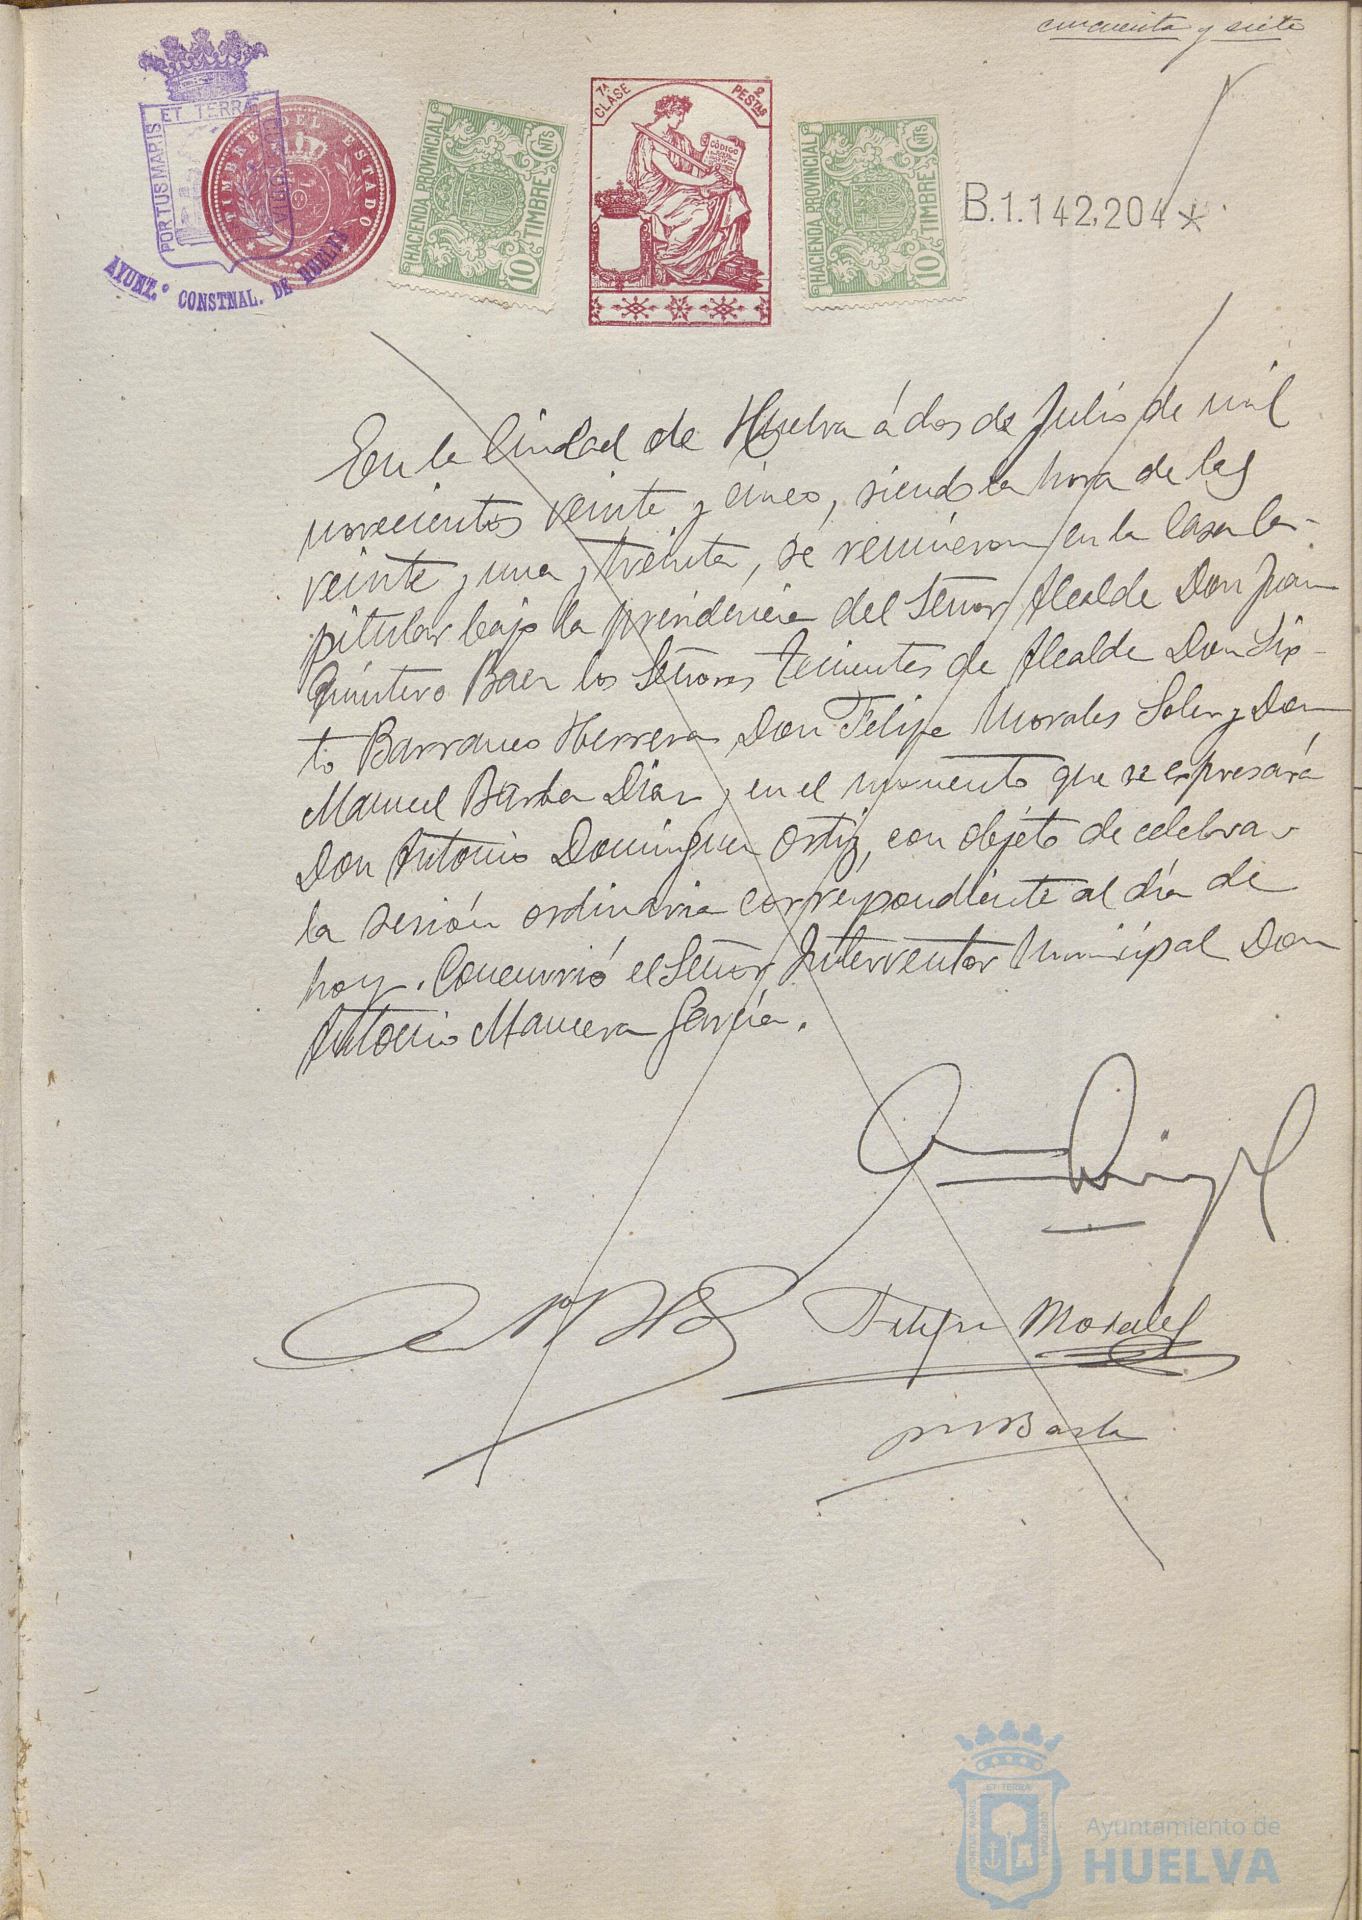 cincuenta y siete
ET TERRÆ
PORTUS MARIS
AYUNT.º CONSTNAL. DE HUELVA
TIMBRE DEL ESTADO
HACIENDA PROVINCIAL
10 CNTS
TIMBRE
7ª CLASE
2 PESTAS
CÓDIGO
HACIENDA PROVINCIAL
10 CNTS
TIMBRE
B.1.142,204*
En la Ciudad de Huelva á dos de Julio de mil
novecientos veinte y cinco, siendo la hora de las
veinte y una y treinta, se reunieron en la Casa Ca-
pitular bajo la presidencia del Señor Alcalde Don Juan
Quintero Baez los Señores Tenientes de Alcalde Don Six-
to Barranco Herrera, Don Felipe Morales Soler y Don
Manuel Barba Diaz y en el momento que se expresará
Don Antonio Dominguez Ortiz, con objeto de celebrar
la sesión ordinaria correspondiente al día de
hoy. Concurrió el Señor Interventor Municipal Don
Antonio Mancera García.
Felipe Morales
M Barba
ET TERRA
PORTUS MARIS
CUSTODIA
Ayuntamiento de
HUELVA